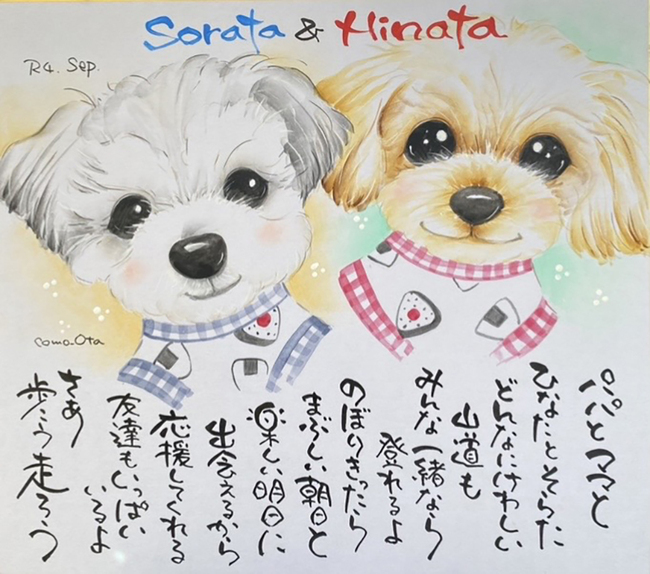 Sorata & Hinata
R4. Sep.
como.Ota
パパとママと
ひなたとそらた
どんなにけわしい
山道も
みんな一緒なら
登れるよ
のぼりきったら
まぶしい朝日と
楽しい明日に
出会えるから
応援してくれる
友達もいっぱい
いるよ
さあ
歩こう走ろう